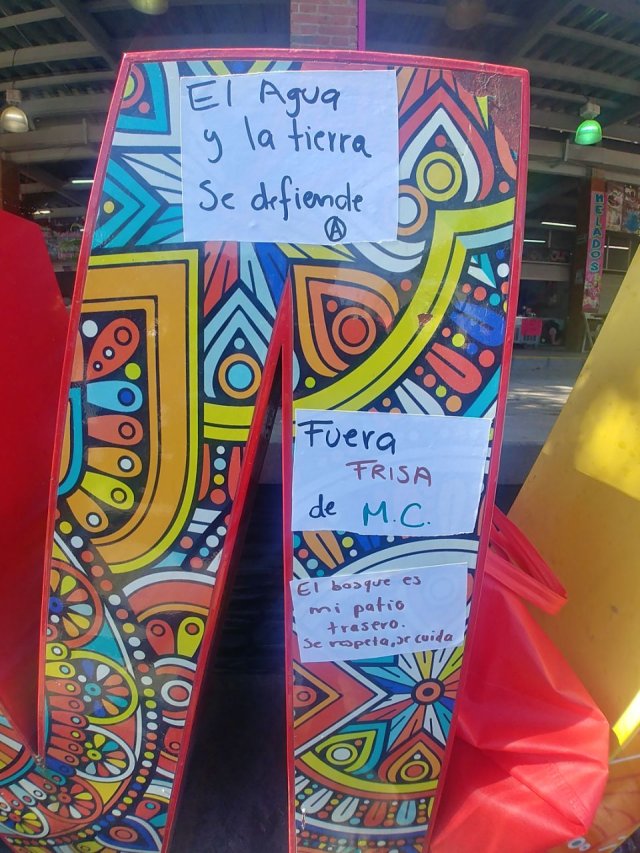 El Agua
y la tierra
Se defiende
A
Fuera
FRISA
de M.C.
El bosque es
mi patio
trasero.
Se respeta, se cuida
HELADOS